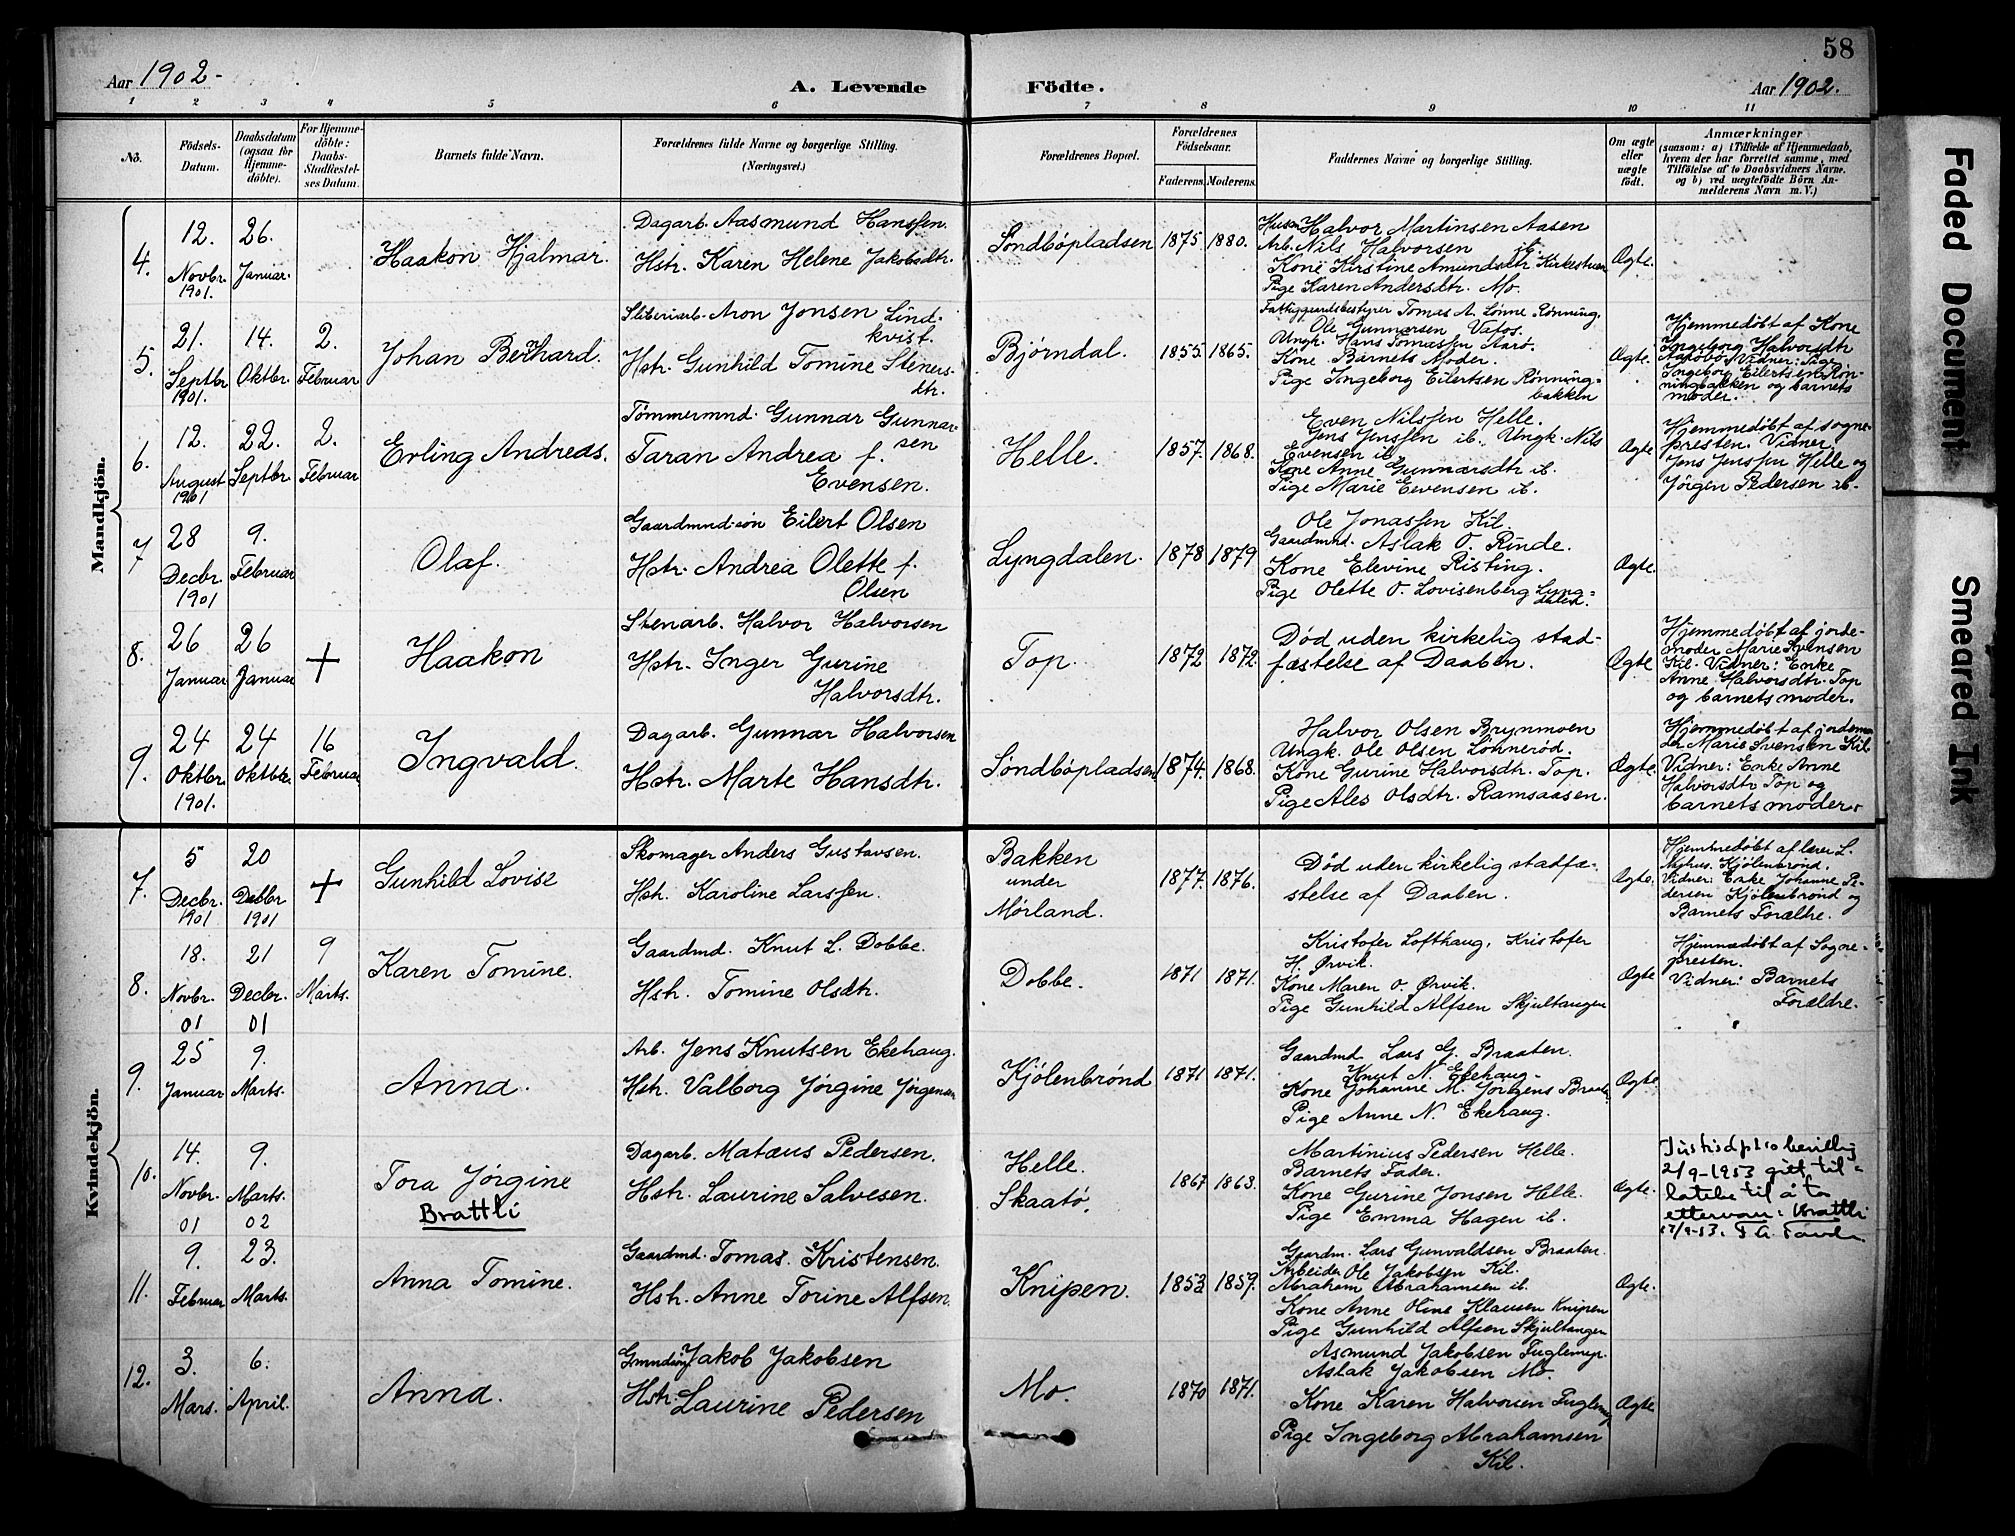 58
Aar 1902-
A. Levende
Födte.
Aar 1902.
1 2 3 4 5 6 7 8 9 10 11
No.
Födsels-
Datum.
Daabsdatum
(ogsaa for
Hjemme-
döbte).
For Hjemme-
döbte:
Daabs-
Stadfæstel-
ses Datum.
Barnets fulde Navn.
Forældrenes fulde Navne og borgerlige Stilling.
(Næringsvei.)
Forældrenes Bopæl.
Forældrenes
Födselsaar.
Faderens. Moderens.
Faddernes Navne og borgerlige Stilling.
Om ægte
eller
uægte
födt.
Anmærkninger
(saasom: a) i Tilfælde af Hjemmedaab,
hvem der har forrettet samme, med
Tilföielse af to Daabsvidners Navne.
og b) ved uægtefödte Börn An-
melderens Navn m. V.)
Mandkjön.
4.
12.
Novbr.
1901.
26.
Januar.
Haakon Hjalmar.
Dagarb. Aasmund Hanssen.
Hstr. Karen Helene Jakobsdtr.
Søndbøpladsen
1875. 1880.
Husm Halvor Martinsen Aasen
Arb. Nils Halvorsen ib.
Kone Kirstine Amundsdtr. Kirkestuen
Pige Karen Andersdtr. Mo.
Ægte.
5.
21.
Septbr.
1901.
14.
Oktbr.
2.
Februar
Johan Bernhard.
Sliberiarb. Aron Jonsen Lind-
kvist.
Hstr. Gunhild Tomine Steners-
dtr.
Bjørndal.
1855. 1865.
Fattiggaardsbestyrer Tomas A. Lønne Rønning.
Ole Gunnarsen Vafos.
Ungk. Hans Tomassen Aarø.
Kone Barnets Moder.
Pige Ingeborg Eilertsen Rønning-
bakken
Ægte.
Hjemmedøbt af Kone
Ingeborg Halvorsdtr
Vidner: Pige
Ingeborg Eilertsen Røn-
ningbakken og barnets
moder.
6.
12.
August
1901
22.
Septbr.
2.
Februar
Erling Andreas.
Tømmermnd. Gunnar Gunnar-
sen
Taran Andrea f.
Evensen.
Helle.
1857. 1868.
Even Nilssen Helle.
Jens Jenssen ib., Ungk. Nils
Evensen ib.
Kone Anne Gunnarsdtr ib.
Pige Marie Evensen ib.
Ægte
Hjemmedøbt af sogne-
presten. Vidner
Jens Jenssen Helle og
Jørgen Pedersen ib.
7
28
Decbr.
1901
9.
Februar
Olaf.
Gaardmnd.søn Eilert Olsen
Hstr. Andrea Olette f.
Olsen
Lyngdalen.
1878 1879
Ole Jonassen Kil.
Gaardmnd. Aslak O. Rinde.
Kone Elevine Risting.
Pige Olette O. Lovisenberg Lyng-
dalen.
Ægte.
8.
26
Januar
26
Januar
+
Haakon
Stenarb. Halvor Halvorsen
Hstr. Inger Gurine
Halvorsdtr.
Top.
1872 1872.
Død uden kirkelig stad-
fæstelse af Daaben.
Ægte
Hjemmedøbt af jorde-
moder Marie Svensen
Kil. Vidner: Enke
Anne Halvorsdtr. Top
og barnets moder.
9.
24
Oktbr.
1901.
24
Oktbr.
16
Februar
Ingvald.
Dagarb. Gunnar Halvorsen
Hstr. Marte Hansdtr.
Søndbøpladsen
1874. 1868.
Halvor Olsen Brynmoen
Ungk. Ole Olsen Lønnerød.
Kone Gurine Halvorsdtr. Top.
Pige Ales Olsdtr. Ramsaasen.
Ægte.
Hjemmedøbt af jordemo
der Marie Svensen Kil
Vidner: Enke Anne
Halvorsdtr Top og
barnets moder.
Kvindekjön.
7.
5
Decbr.
1901
20
Decbr
1901
+
Gunhild Lovise
Skomager Anders Gustavsen.
Hstr. Karoline Larssen.
Bakken
under
Mørland.
1877. 1876.
Død uden kirkelig stadfæ-
stelse af Daaben.
Ægte.
Hjemmedøbt af lærer L.
Nyhus. Kjølenbrønd.
Vidner: Enke Johanne Pe-
dersen Kjølenbrønd og
Barnets Forældre.
8.
18.
Novbr.
01
21
Decbr.
01
9
Marts.
Karen Tomine.
Gaardmd. Knut L. Dobbe.
Hstr. Tomine Olsdtr.
Dobbe.
1871 1871.
Kristofer Lofthaug, Kristofer
H. Ørvik.
Kone Maren O. Ørvik.
Pige Gunhild Alfsen Skjultangen
Ægte
Hjemmedøbt af Sogne-
presten.
Vidner: Barnets
Forældre.
9.
25
Januar
9.
Marts.
Anna.
Arb. Jens Knutsen Ekehaug.
Hstr. Valborg Jørgine Jørgensen
Kjølenbrønd
1871 1871.
Gaardmd. Lars G. Braaten.
Knut N. Ekehaug.
Kone Johanne M. Jørgens Braaten
Pige Anne N. Ekehaug.
Ægte
10.
14.
Novbr.
01
9.
Marts.
02
Tora Jørgine
Brattli
Dagarb. Matæus Pedersen.
Hstr. Laurine Salvesen.
Helle.
Skaatø.
1867 1863.
Martinius Pedersen Helle.
Barnets Fader.
Kone Gurine Jonsen Helle.
Pige Emma Hagen ib.
Ægte.
Justisdpts bevillg
2/9-1953 gitt til-
latelse til å ta
etternavn: Brattli
11.
9.
Februar
23.
Marts.
Anna Tomine.
Gaardmd. Tomas Kristensen.
Hstr. Anne Torine Alfsen.
Knipen.
1853 1859.
Gaardm. Lars Gunvaldsen Braaten.
Arbeider Ole Jakobsen Kil.
Abraham Abrahamsen ib.
Kone Anne Oline Klausen Knipen
Pige Gunhild Alfsen Skjultangen
Ægte.
12.
3.
Mars.
6.
April.
Anna.
Jakob Jakobsen
Hstr. Laurine Pedersen
Mo.
1870 1871.
Asmund Jakobsen Fuglemyr.
Aslak Jakobsen Mo.
Kone Karen Halvorsen Fuglemyr
Pige Ingeborg Abrahamsen
Kil.
Ægte
Faded Document
Smeared Ink